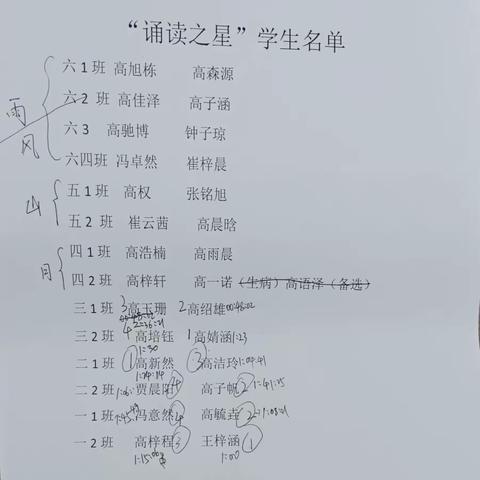 “诵读之星”学生名单
六 1 班 高旭栋 高森源
雨
六 2 班 高佳泽 高子涵
风
六 3 高驰博 钟子琼
六四班 冯卓然 崔梓晨
山
五 1 班 高权 张铭旭
五 2 班 崔云茜 高晨晗
月
四 1 班 高浩楠 高雨晨
四 2 班 高梓轩 高一诺（生病）高语泽（备选）
三 1 班 3 高玉珊 2 高绍雄 00:48:02
三 2 班 4 高培钰 1 高婧涵 1:23
1:30
二 1 班 ① 高新然 ③ 高洁玲 1:09:41
1:24:14
二 2 班 贾晨阳 ④ 高子帆 ② 1:41:25
一 1 班 1:45 冯意然 ④ 高毓垚 ② 1:08:21
一 2 班 高梓程 ③ 王梓涵 ①
1:15:06 1:00